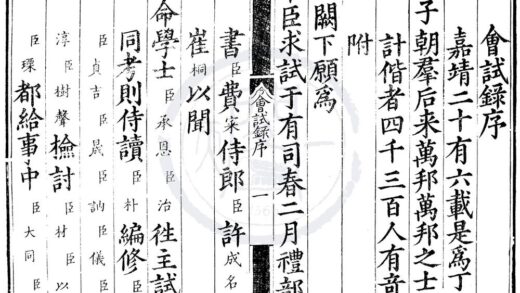 會試錄序
嘉靖二十有六載是為丁
子朝羣后来萬邦萬邦之士
計偕者四千三百人有竒
附
闕下願為
臣求試于有司春二月禮部
會試録序 一
書臣費寀侍郎臣許成名
崔桐以聞
命學士臣承恩臣治徃主試
同考則侍讀臣朴編修臣
臣貞吉臣晟臣訥臣儀臣
淳臣樹聲檢討臣材臣以
臣瑮都給事中臣大同臣